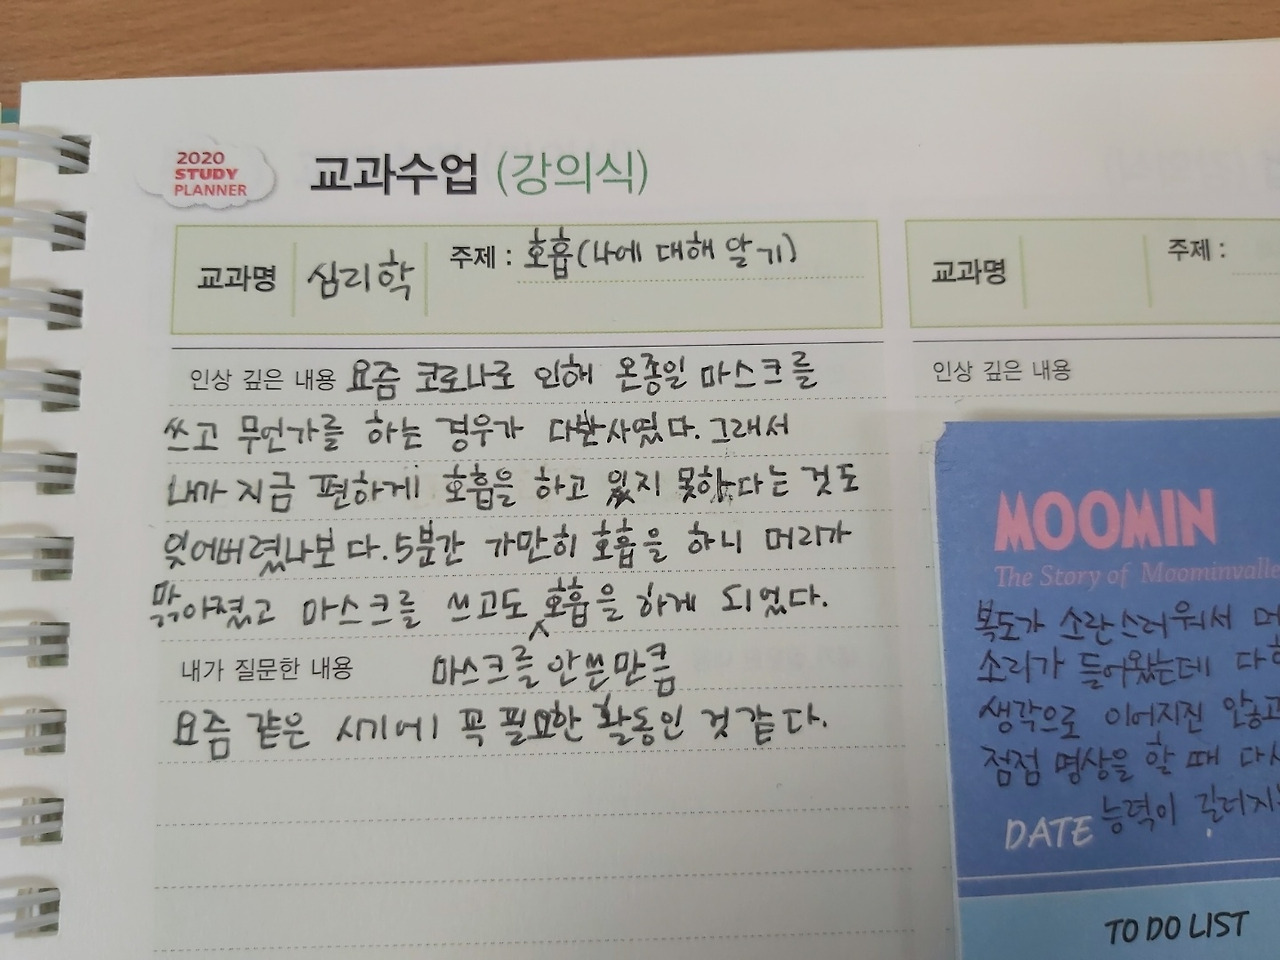 2020
STUDY
PLANNER
교과수업 (강의식)
교과명 심리학 주제 : 호흡(나에 대해 알기)
인상 깊은 내용 요즘 코로나로 인해 온종일 마스크를
쓰고 무언가를 하는 경우가 다반사였다. 그래서
내가 지금 편하게 호흡을 하고 있지 못하다는 것도
잊어버렸나보다. 5분간 가만히 호흡을 하니 머리가
맑아졌고 마스크를 쓰고도 호흡을 하게 되었다.
내가 질문한 내용 마스크를 안쓴만큼
요즘 같은 시기에 꼭 필요한 활동인 것 같다.
교과명 주제 :
인상 깊은 내용
MOOMIN
The Story of Moominvalle
복도가 소란스러워서
소리가 들어왔는데
생각으로 이어지진 않고
점점 명상을 할 때
능력이 길러지
DATE
TO DO LIST